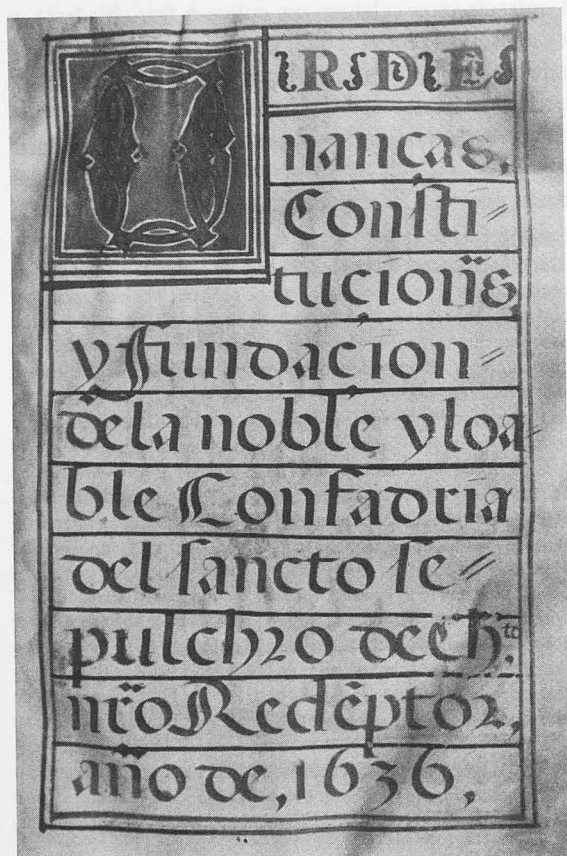 ORDE
nanças,
Consti=
tucion̄es
y fundacion=
de la noble y loa-
ble Confadria
del sancto se=
pulchro de Chr̄to
nr̃o Redẽptor,
año de, 1636,